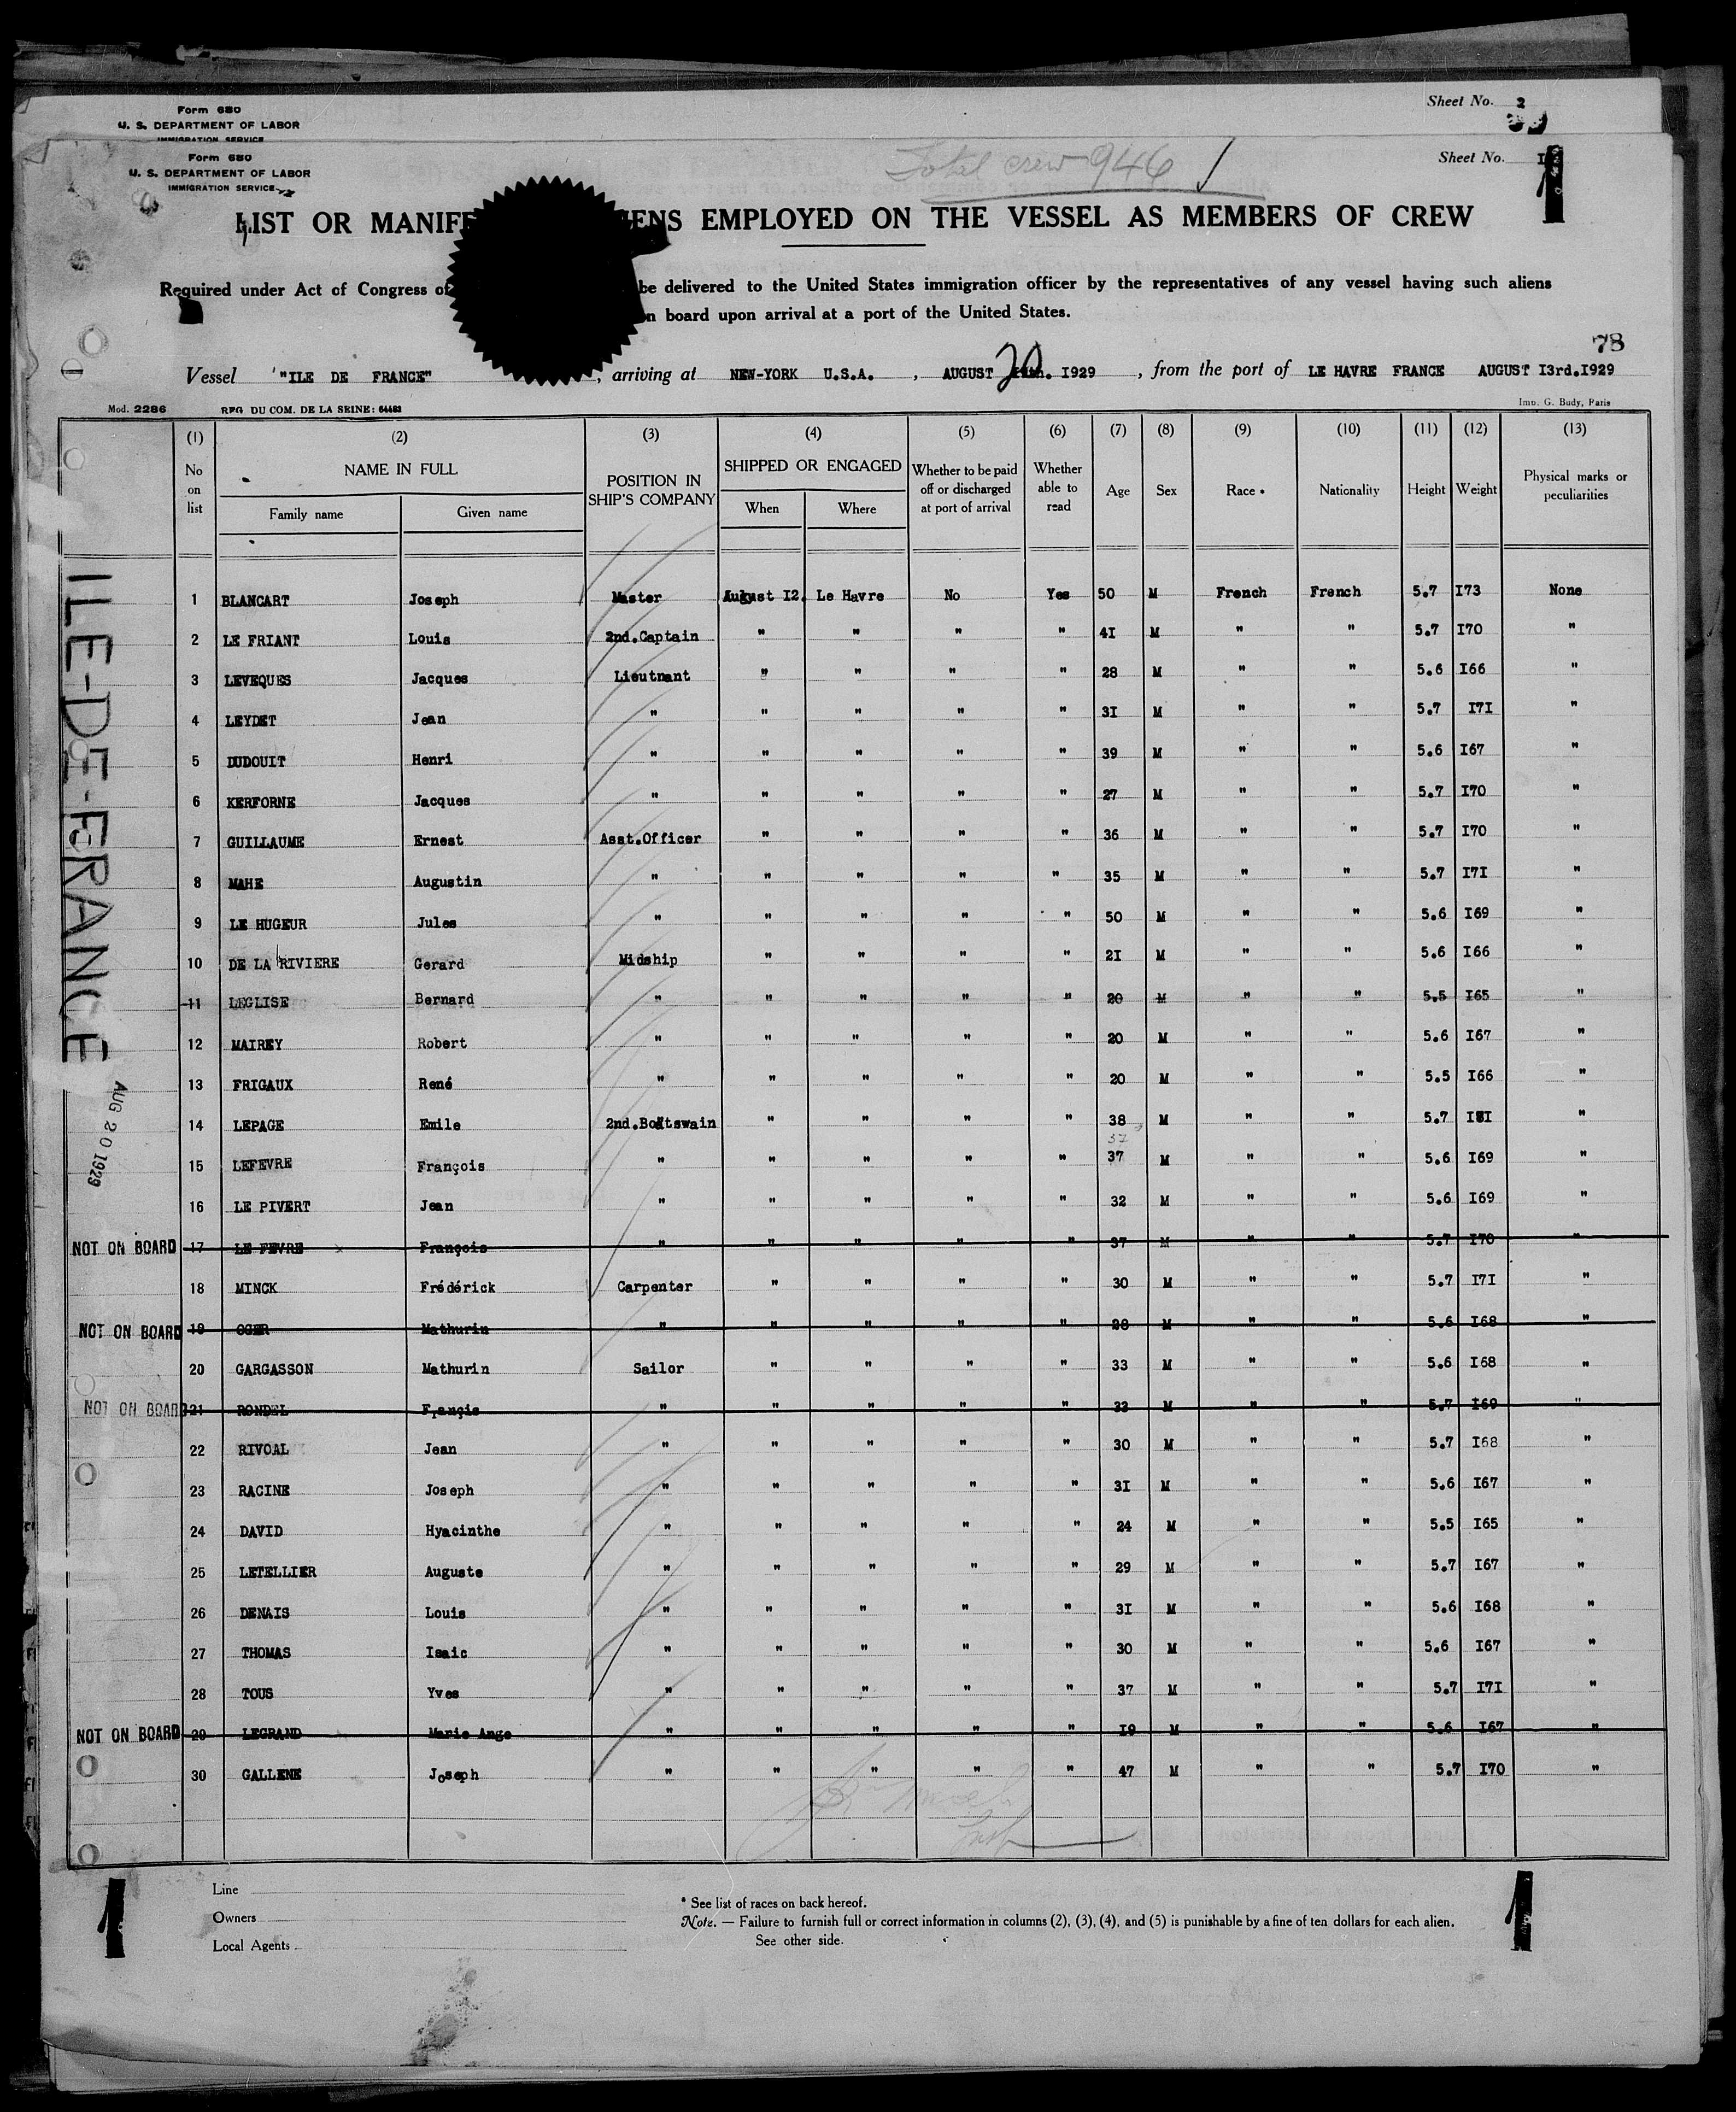 Form 680
U. S. DEPARTMENT OF LABOR
IMMIGRATION SERVICE
Sheet No. 2
Form 680
U. S. DEPARTMENT OF LABOR
IMMIGRATION SERVICE
Total crew 946
Sheet No. I
1
LIST OR MANIFE IENS EMPLOYED ON THE VESSEL AS MEMBERS OF CREW
Required under Act of Congress of be delivered to the United States immigration officer by the representatives of any vessel having such aliens
n board upon arrival at a port of the United States.
78
Vessel "ILE DE FRANCE" , arriving at NEW-YORK U.S.A. , AUGUST 20 I929 , from the port of LE HAVRE FRANCE AUGUST I3rd.I929
Mod. 2286 REG DU COM. DE LA SEINE: 64483 Imp. G. Budy, Paris
(1) (2) (3) (4) (5) (6) (7) (8) (9) (10) (11) (12) (13)
No on list NAME IN FULL Family name Given name POSITION IN SHIP'S COMPANY SHIPPED OR ENGAGED When Where Whether to be paid off or discharged at port of arrival Whether able to read Age Sex Race * Nationality Height Weight Physical marks or peculiarities
ILE-DE-FRANCE
AUG 20 1929
1 BLANCART Joseph Master August I2. Le Havre No Yes 50 M French French 5.7 I73 None
2 LE FRIANT Louis 2nd.Captain " " " " 4I M " " 5.7 I70 "
3 LEVEQUES Jacques Lieutnant " " " " 28 M " " 5.6 I66 "
4 LEYDET Jean " " " " " 3I M " " 5.7 I7I "
5 DUDOUIT Henri " " " " " 39 M " " 5.6 I67 "
6 KERFORNE Jacques " " " " " 27 M " " 5.7 I70 "
7 GUILLAUME Ernest Asst.Officer " " " " 36 M " " 5.7 I70 "
8 MAHE Augustin " " " " " 35 M " " 5.7 I7I "
9 LE HUGEUR Jules " " " " " 50 M " " 5.6 I69 "
10 DE LA RIVIERE Gerard Midship " " " " 2I M " " 5.6 I66 "
11 LEGLISE Bernard " " " " " 20 M " " 5.5 I65 "
12 MAIREY Robert " " " " " 20 M " " 5.6 I67 "
13 FRIGAUX René " " " " " 20 M " " 5.5 I66 "
14 LEPAGE Emile 2nd.Boatswain " " " " 38 M " " 5.7 I8I "
37
15 LEFEVRE François " " " " " 37 M " " 5.6 I69 "
16 LE PIVERT Jean " " " " " 32 M " " 5.6 I69 "
NOT ON BOARD 17 LE FEVRE François " " " " " 37 M " " 5.7 I70 "
18 MINCK Frédérick Carpenter " " " " 30 M " " 5.7 I7I "
NOT ON BOARD 19 OGER Mathurin " " " " " 28 M " " 5.6 I68 "
20 GARGASSON Mathurin Sailor " " " " 33 M " " 5.6 I68 "
NOT ON BOARD 21 RONDEL Françis " " " " " 33 M " " 5.7 I69 "
22 RIVOAL Jean " " " " " 30 M " " 5.7 I68 "
23 RACINE Joseph " " " " " 3I M " " 5.6 I67 "
24 DAVID Hyacinthe " " " " " 24 M " " 5.5 I65 "
25 LETELLIER Auguste " " " " " 29 M " " 5.7 I67 "
26 DENAIS Louis " " " " " 3I M " " 5.6 I68 "
27 THOMAS Isaic " " " " " 30 M " " 5.6 I67 "
28 TOUS Yves " " " " " 37 M " " 5.7 I7I "
NOT ON BOARD 29 LEGRAND Marie Ange " " " " " I9 M " " 5.6 I67 "
30 GALLENE Joseph " " " " " 47 M " " 5.7 I70 "
Line
Owners
Local Agents
* See list of races on back hereof.
Note. — Failure to furnish full or correct information in columns (2), (3), (4), and (5) is punishable by a fine of ten dollars for each alien.
See other side.
1 1